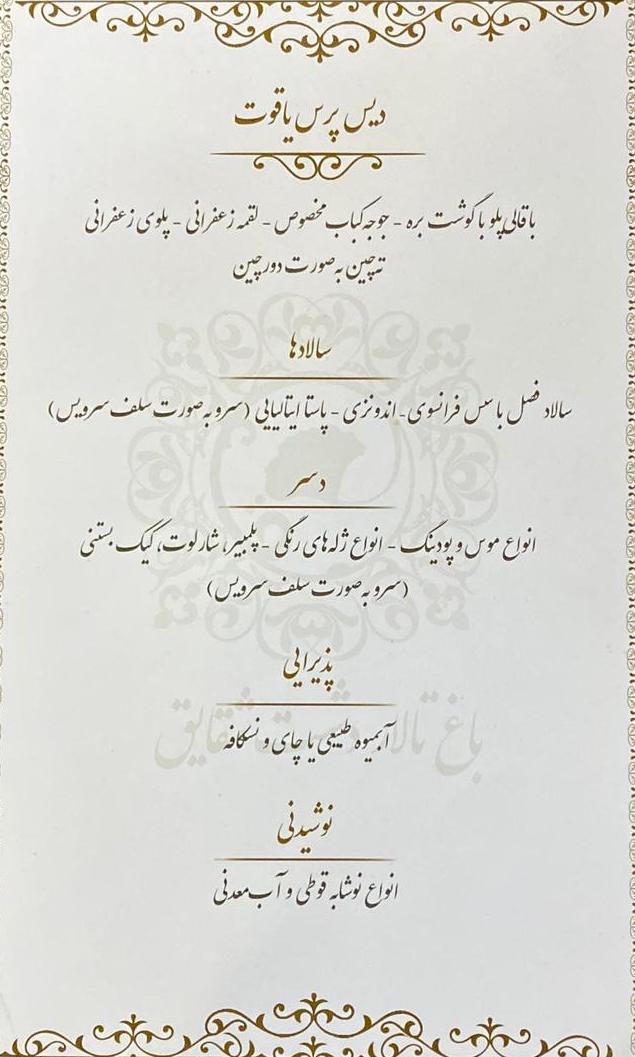 دیس پرس یاقوت
باقالی پلو با گوشت بره - جوجه کباب مخصوص - لقمه زعفرانی - پلوی زعفرانی
ته چین به صورت دورچین
سالادها
سالاد فصل با سس فرانسوی - اندونزی - پاستا ایتالیایی (سرو به صورت سلف سرویس)
دسر
انواع موس و پودینگ - انواع ژله های رنگی - پلمبیر، شارلوت، کیک بستنی
(سرو به صورت سلف سرویس)
پذیرایی
باغ تالار دشت شقایق
آبمیوه طبیعی یا چای و نسکافه
نوشیدنی
انواع نوشابه قوطی و آب معدنی